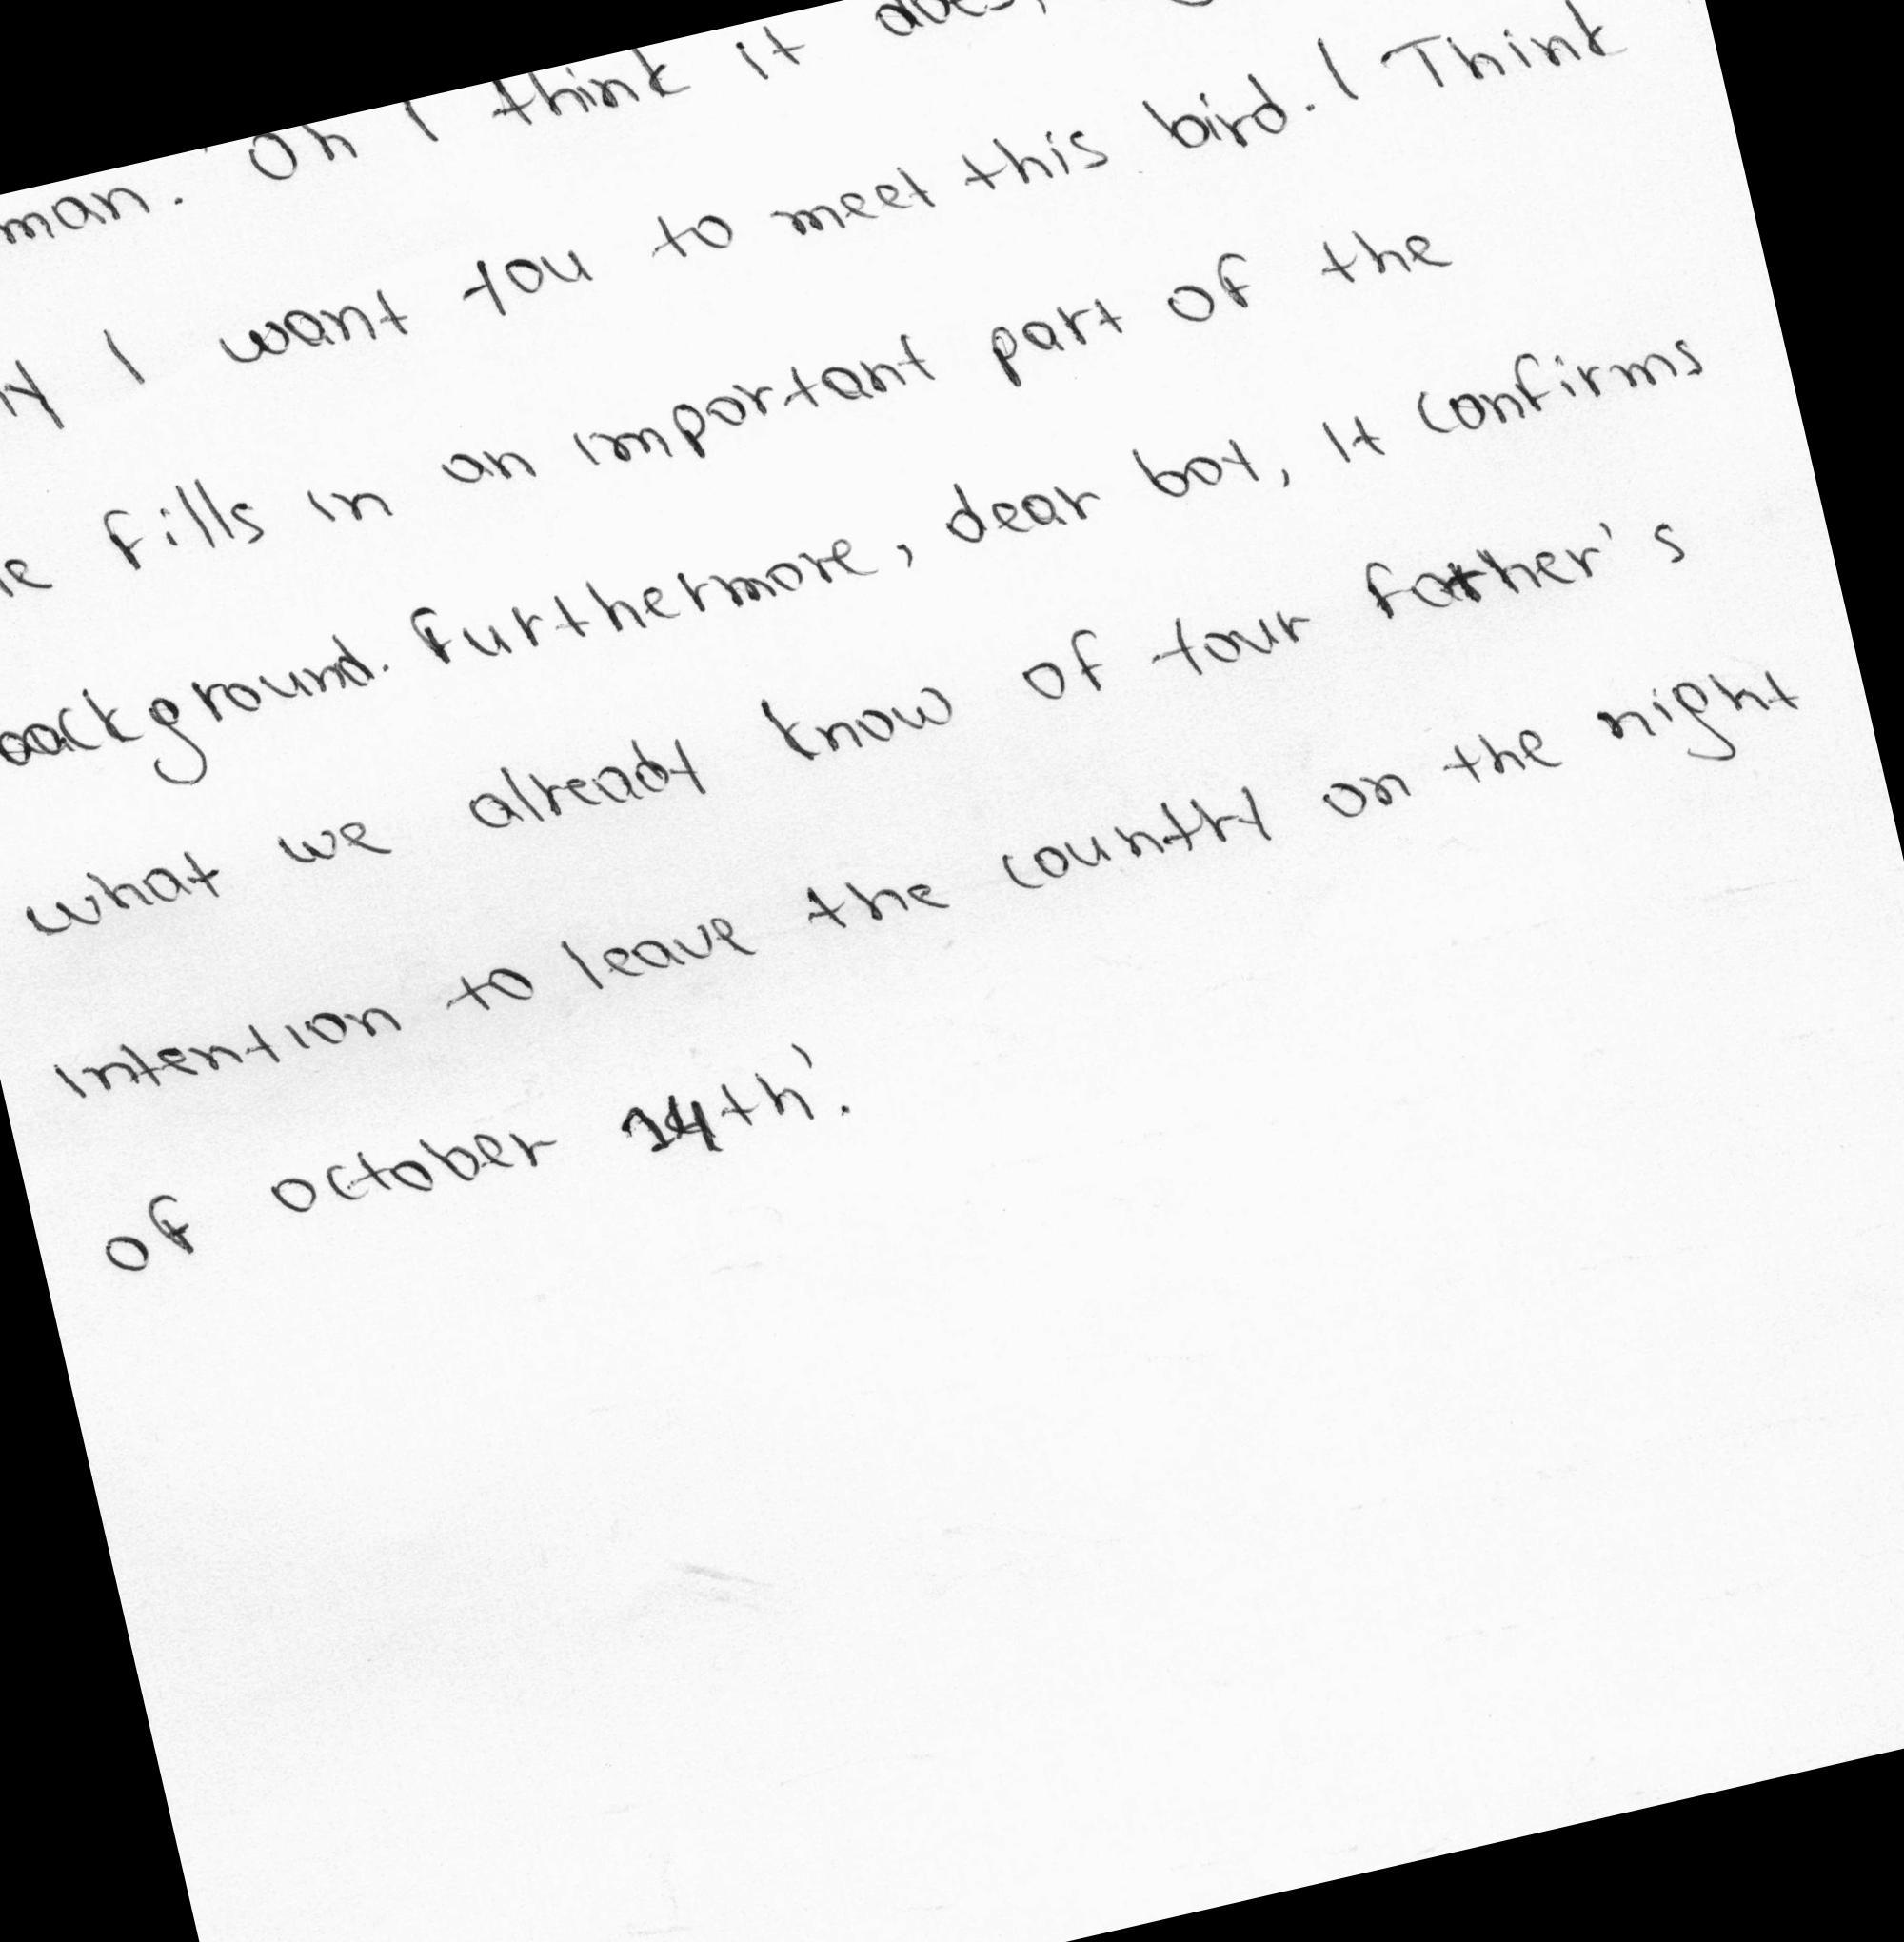 man. Oh I think it does,
I want you to meet this bird. I Think
fills in an important part of the
background. Furthermore, dear boy, It confirms
what we already know of your father's
Intention to leave the country on the night
of october 24th'.